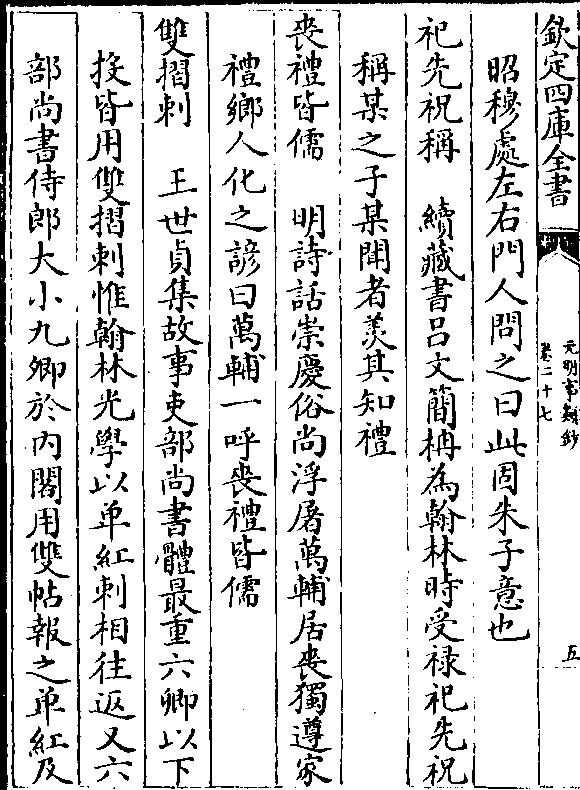 欽定四庫全書
元明事類鈔
卷二十七
五
昭穆處左右門人問之曰此固朱子意也
祀先祝稱　續藏書呂文簡柟為翰林時受祿祀先祝
稱某之子某聞者羡其知禮
喪禮皆儒　明詩話崇慶俗尚浮屠萬輔居喪獨遵家
禮鄉人化之諺曰萬輔一呼喪禮皆儒
雙摺刺　王世貞集故事吏部尚書體最重六卿以下
投皆用雙摺刺惟翰林光學以单紅刺相往返又六
部尚書侍郎大小九卿於内閣用雙帖報之单紅及